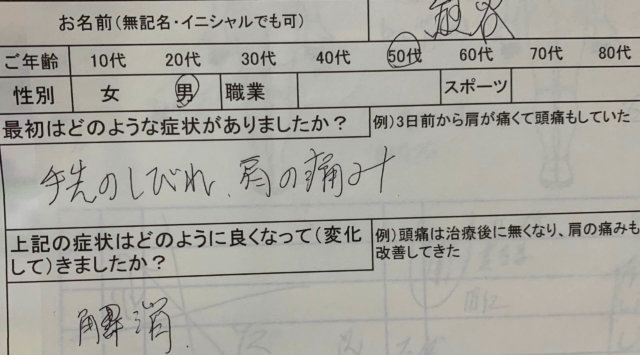 お名前（無記名・イニシャルでも可）
ご年齢 10代 20代 30代 40代 50代 60代 70代 80代
性別 女 男 職業 スポーツ
最初はどのような症状がありましたか？ 例）3日前から肩が痛くて頭痛もしていた
手先のしびれ、肩の痛み
上記の症状はどのように良くなって（変化して）きましたか？
例）頭痛は治療後に無くなり、肩の痛みも
改善してきた
解消